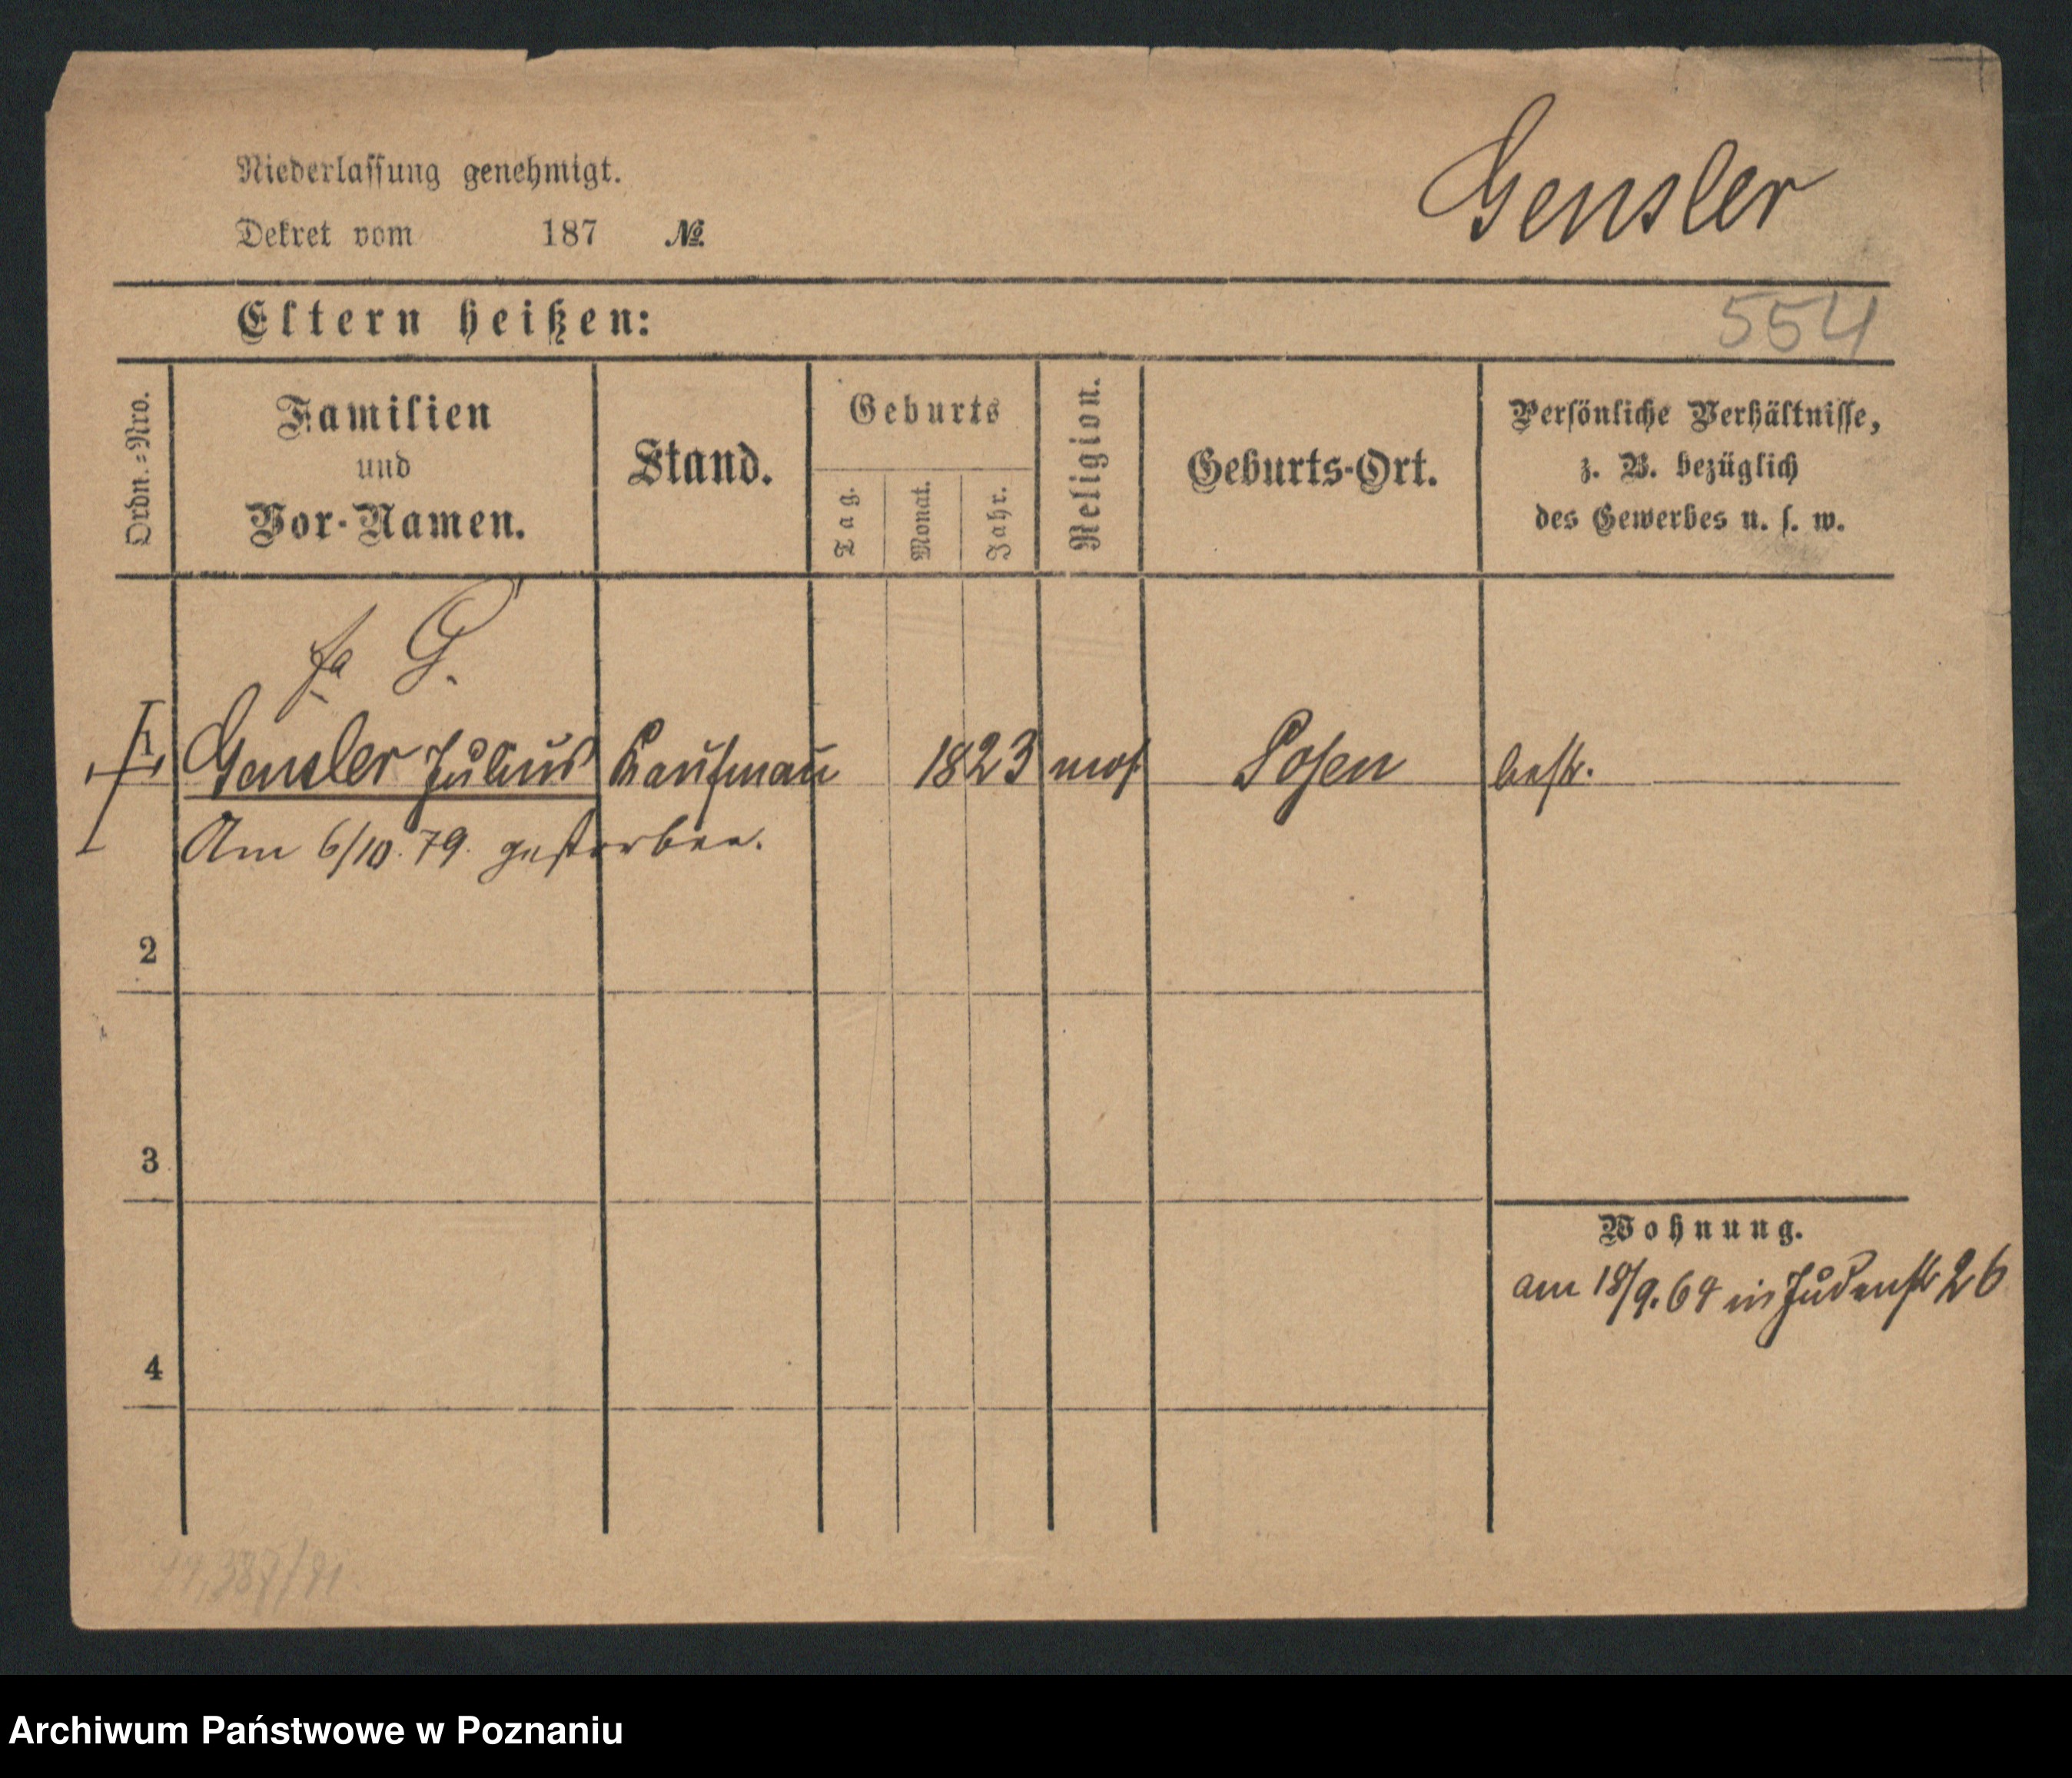 Niederlassung genehmigt.
Gensler
Dekret vom 187 №
Eltern heißen:
554
Ordn.=Nro.
Familien
und
Vor-Namen.
Stand.
Geburts
Tag.
Monat.
Jahr.
Religion.
Geburts-Ort.
Persönliche Verhältnisse,
z. B. bezüglich
des Gewerbes u. s. w.
fa G.
1 Gensler Julius Kaufmann 1823 mos. Posen
Am 6/10. 79. gestorben.
2
3
Wohnung.
am 18/9. 64 in Judenstr 26
4
Archiwum Państwowe w Poznaniu